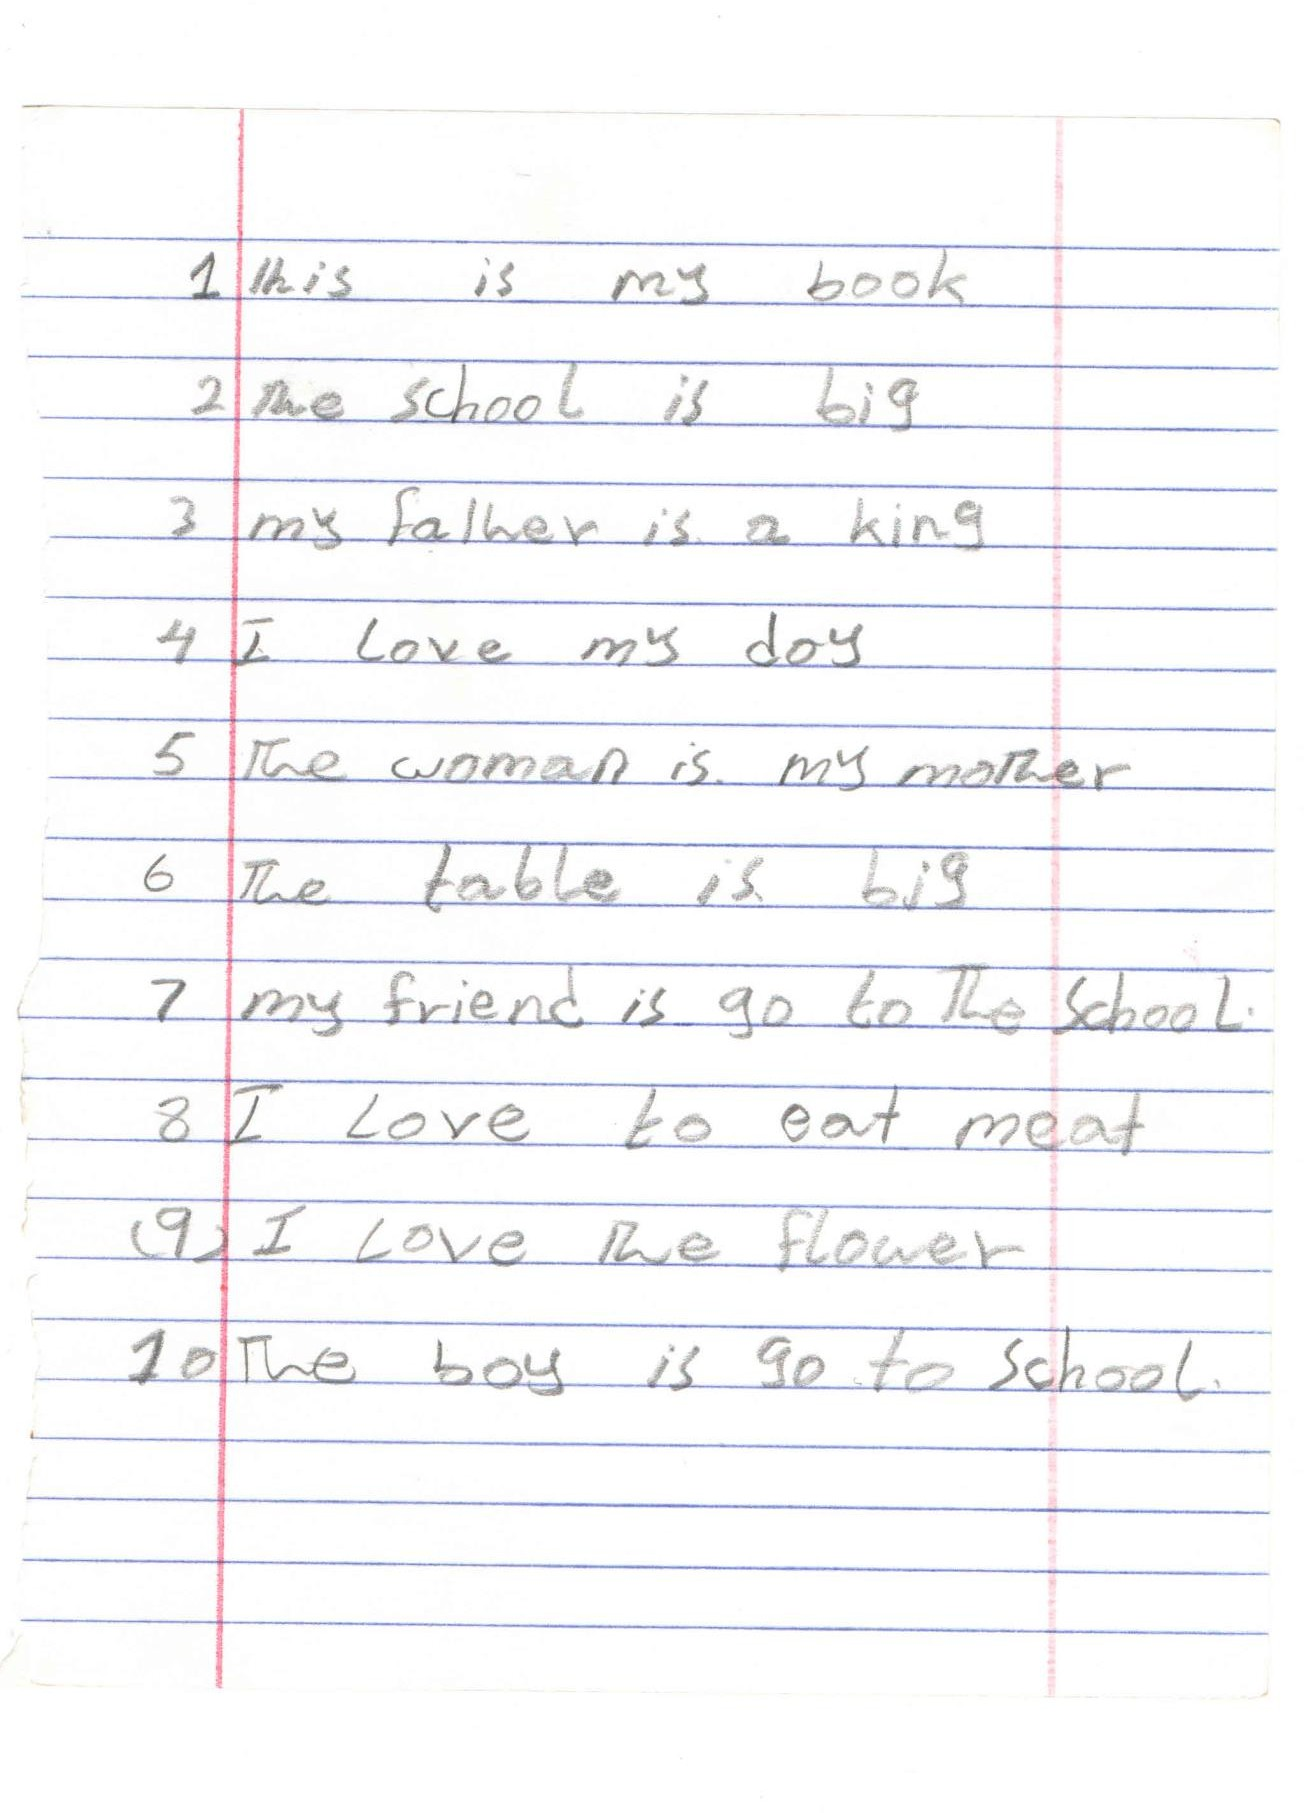 1 This is my book
2 The school is big
3 my father is a king
4 I Love my dog
5 The woman is my mother
6 The table is big
7 my friend is go to The School.
8 I Love to eat meat
(9) I Love The flower
10 The boy is go to School.